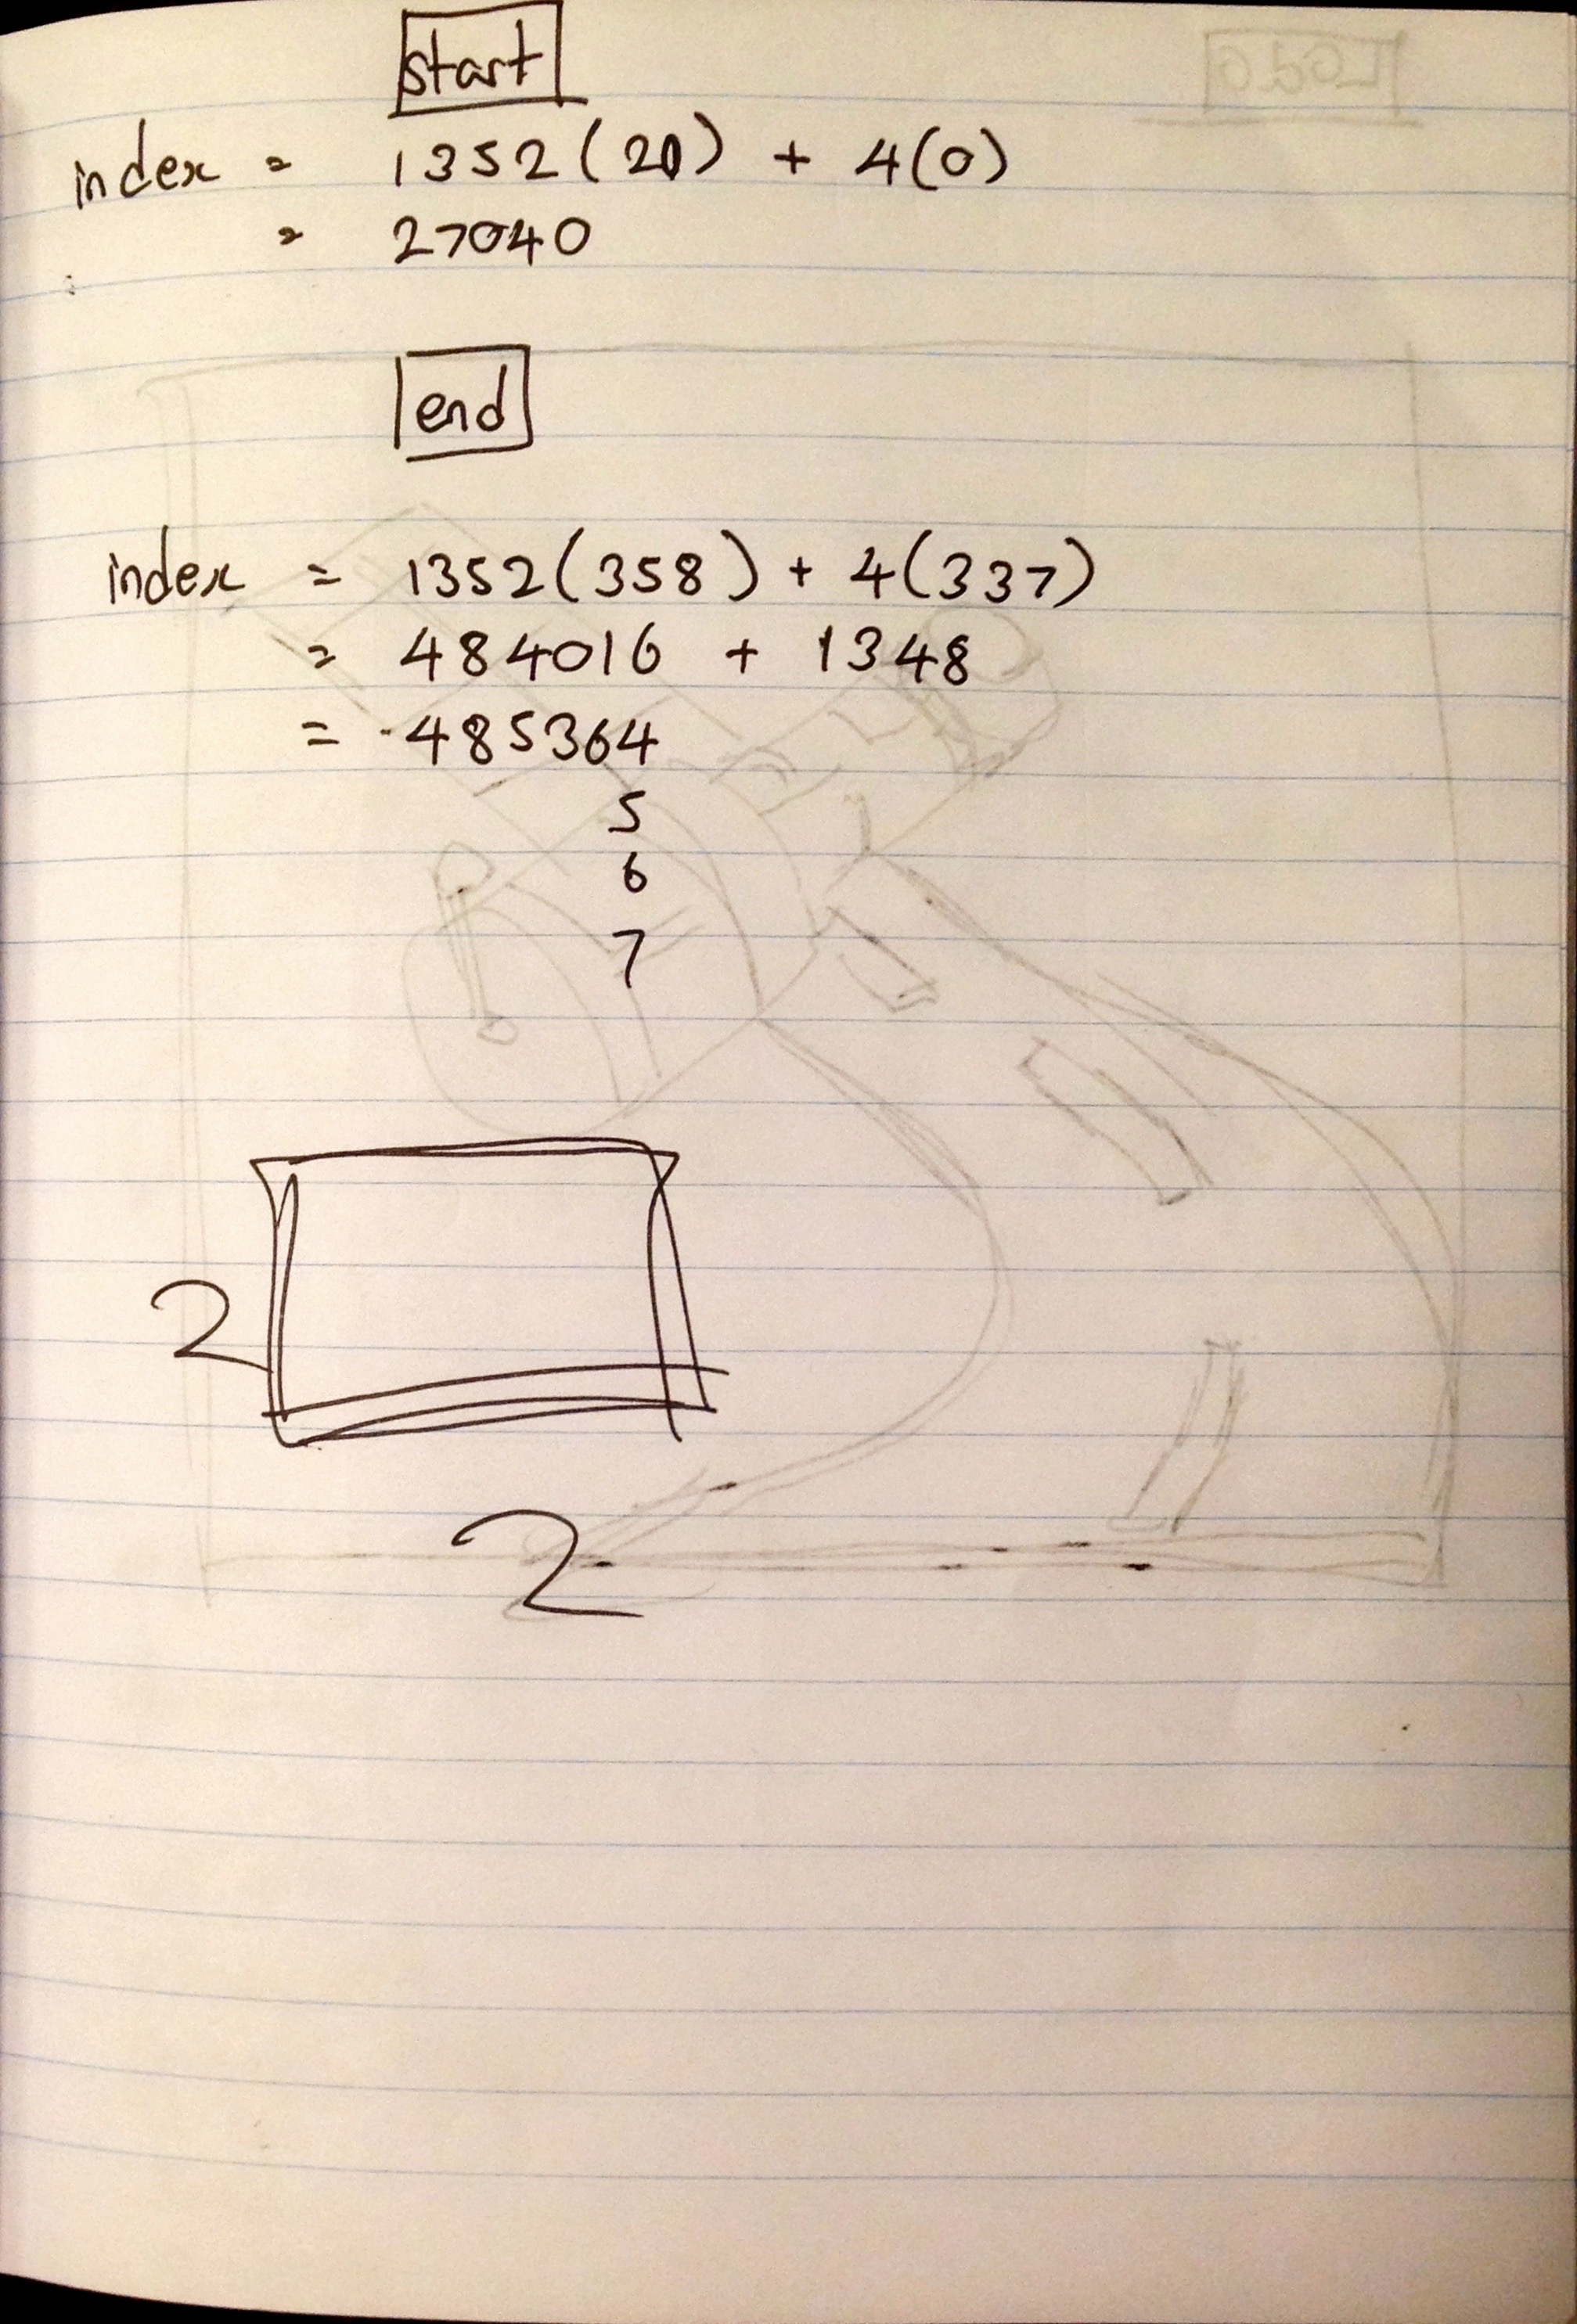 start
index = 1352(20) + 4(0)
= 27040
end
index = 1352(358) + 4(337)
= 484016 + 1348
= 485364
5
6
7
2
2